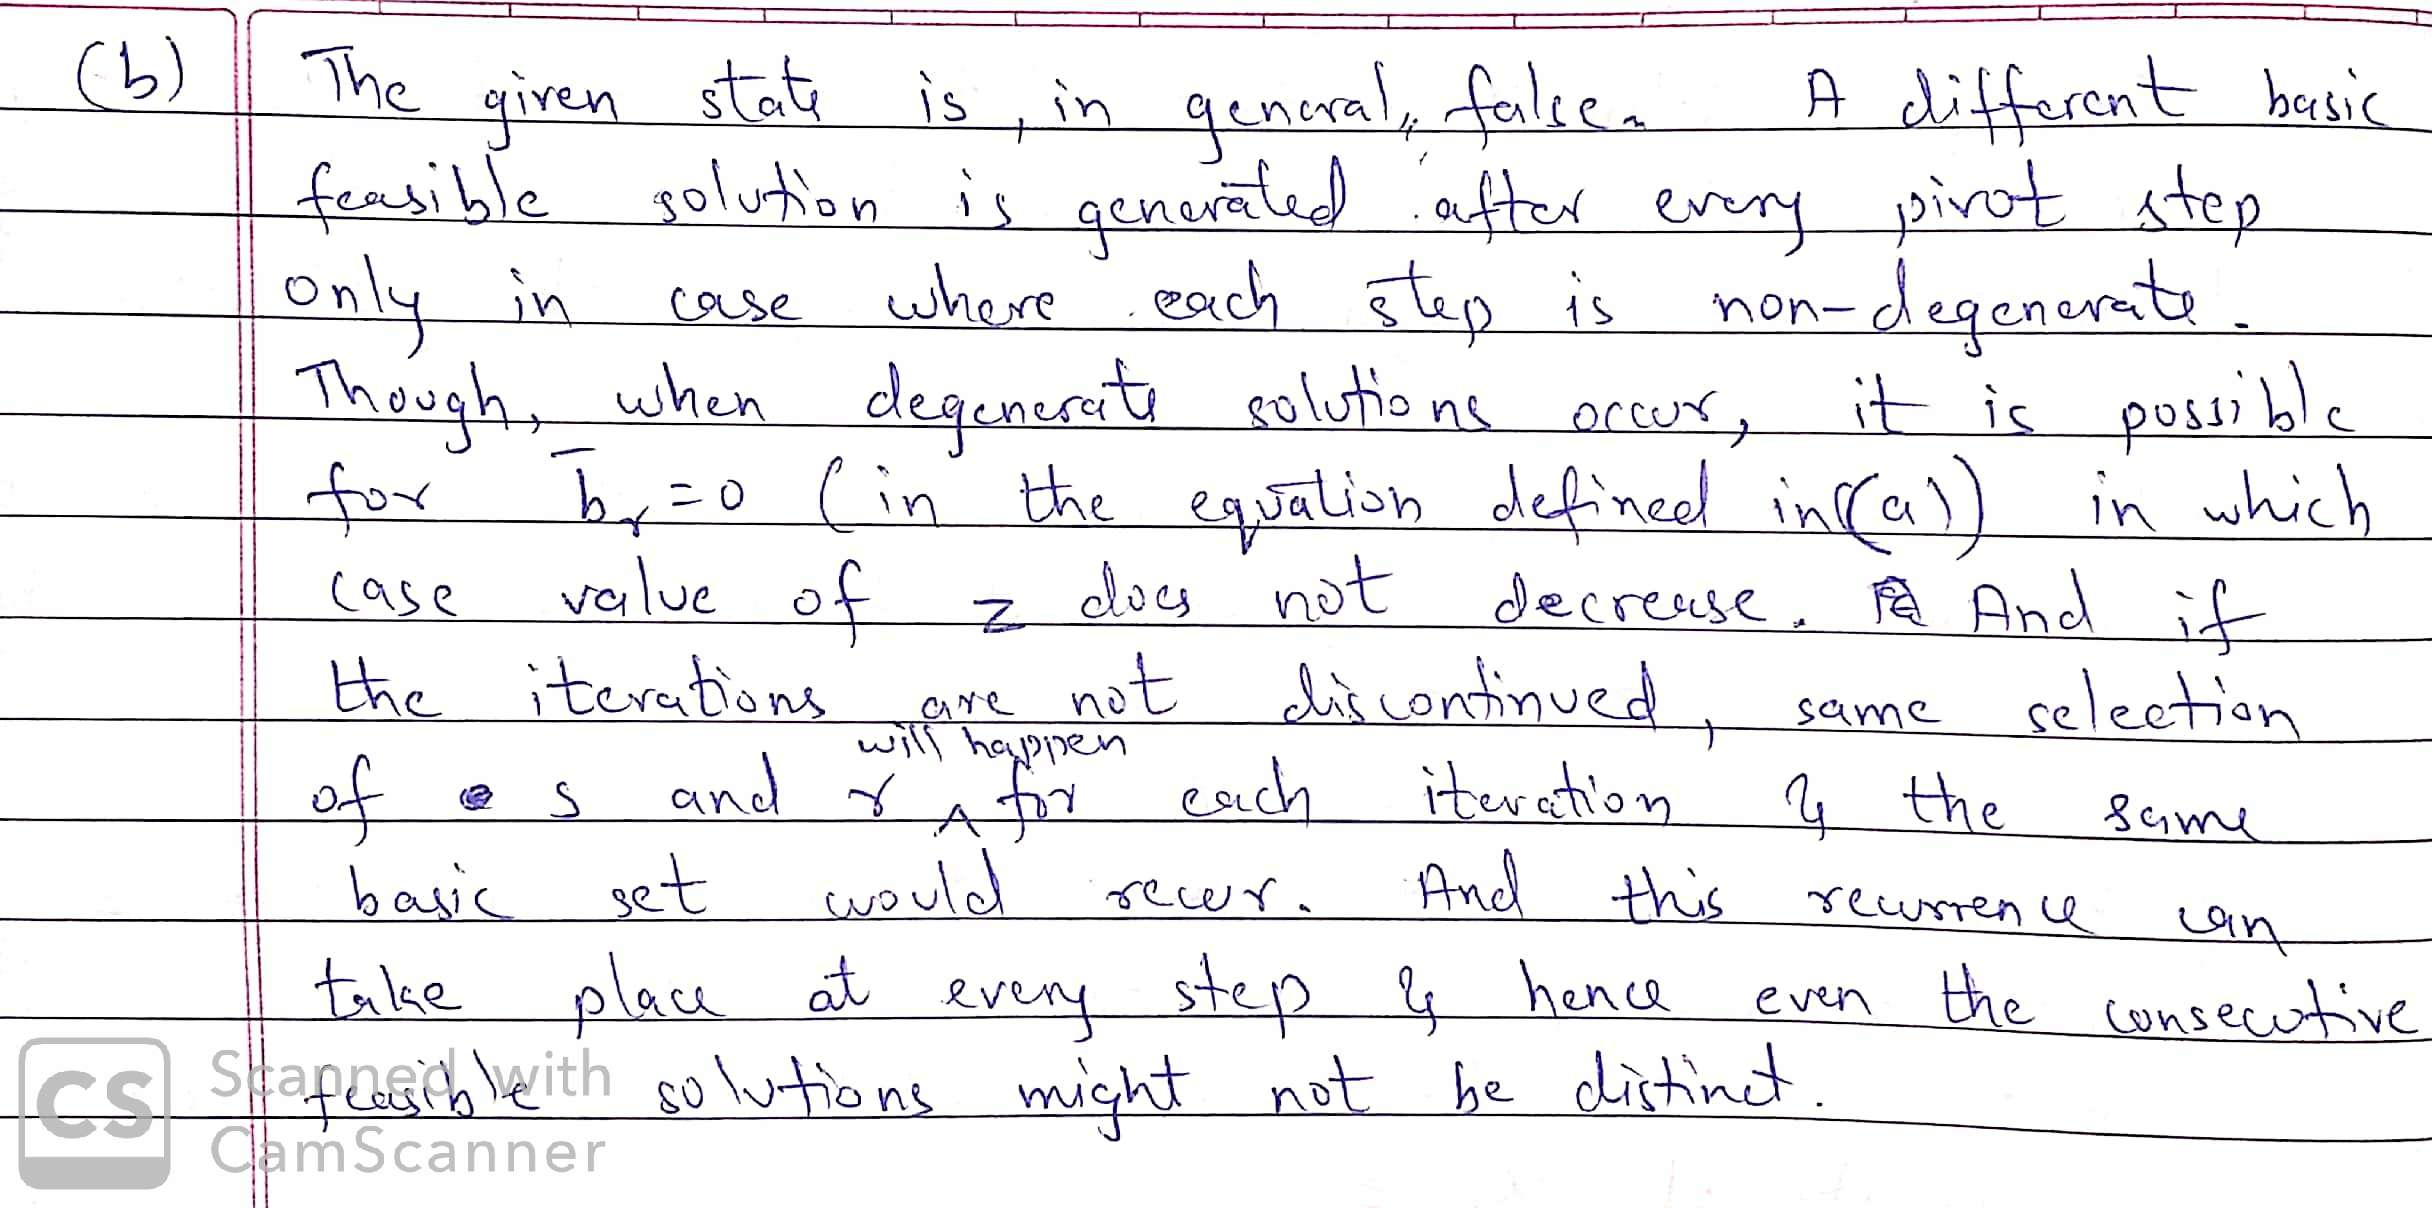 (b) The given state is, in general, false. A different basic
feasible solution is generated after every pivot step
only in case where each step is non-degenerate.
Though, when degenerate solutions occur, it is possible
for b̄r=0 (in the equation defined in (a)) in which
case value of z does not decrease. And if
the iterations are not discontinued, same selection
will happen
of s and r ^ for each iteration & the same
basic set would recur. And this recurrence can
take place at every step & hence even the consecutive
feasible solutions might not be distinct.
CS Scanned with
CamScanner